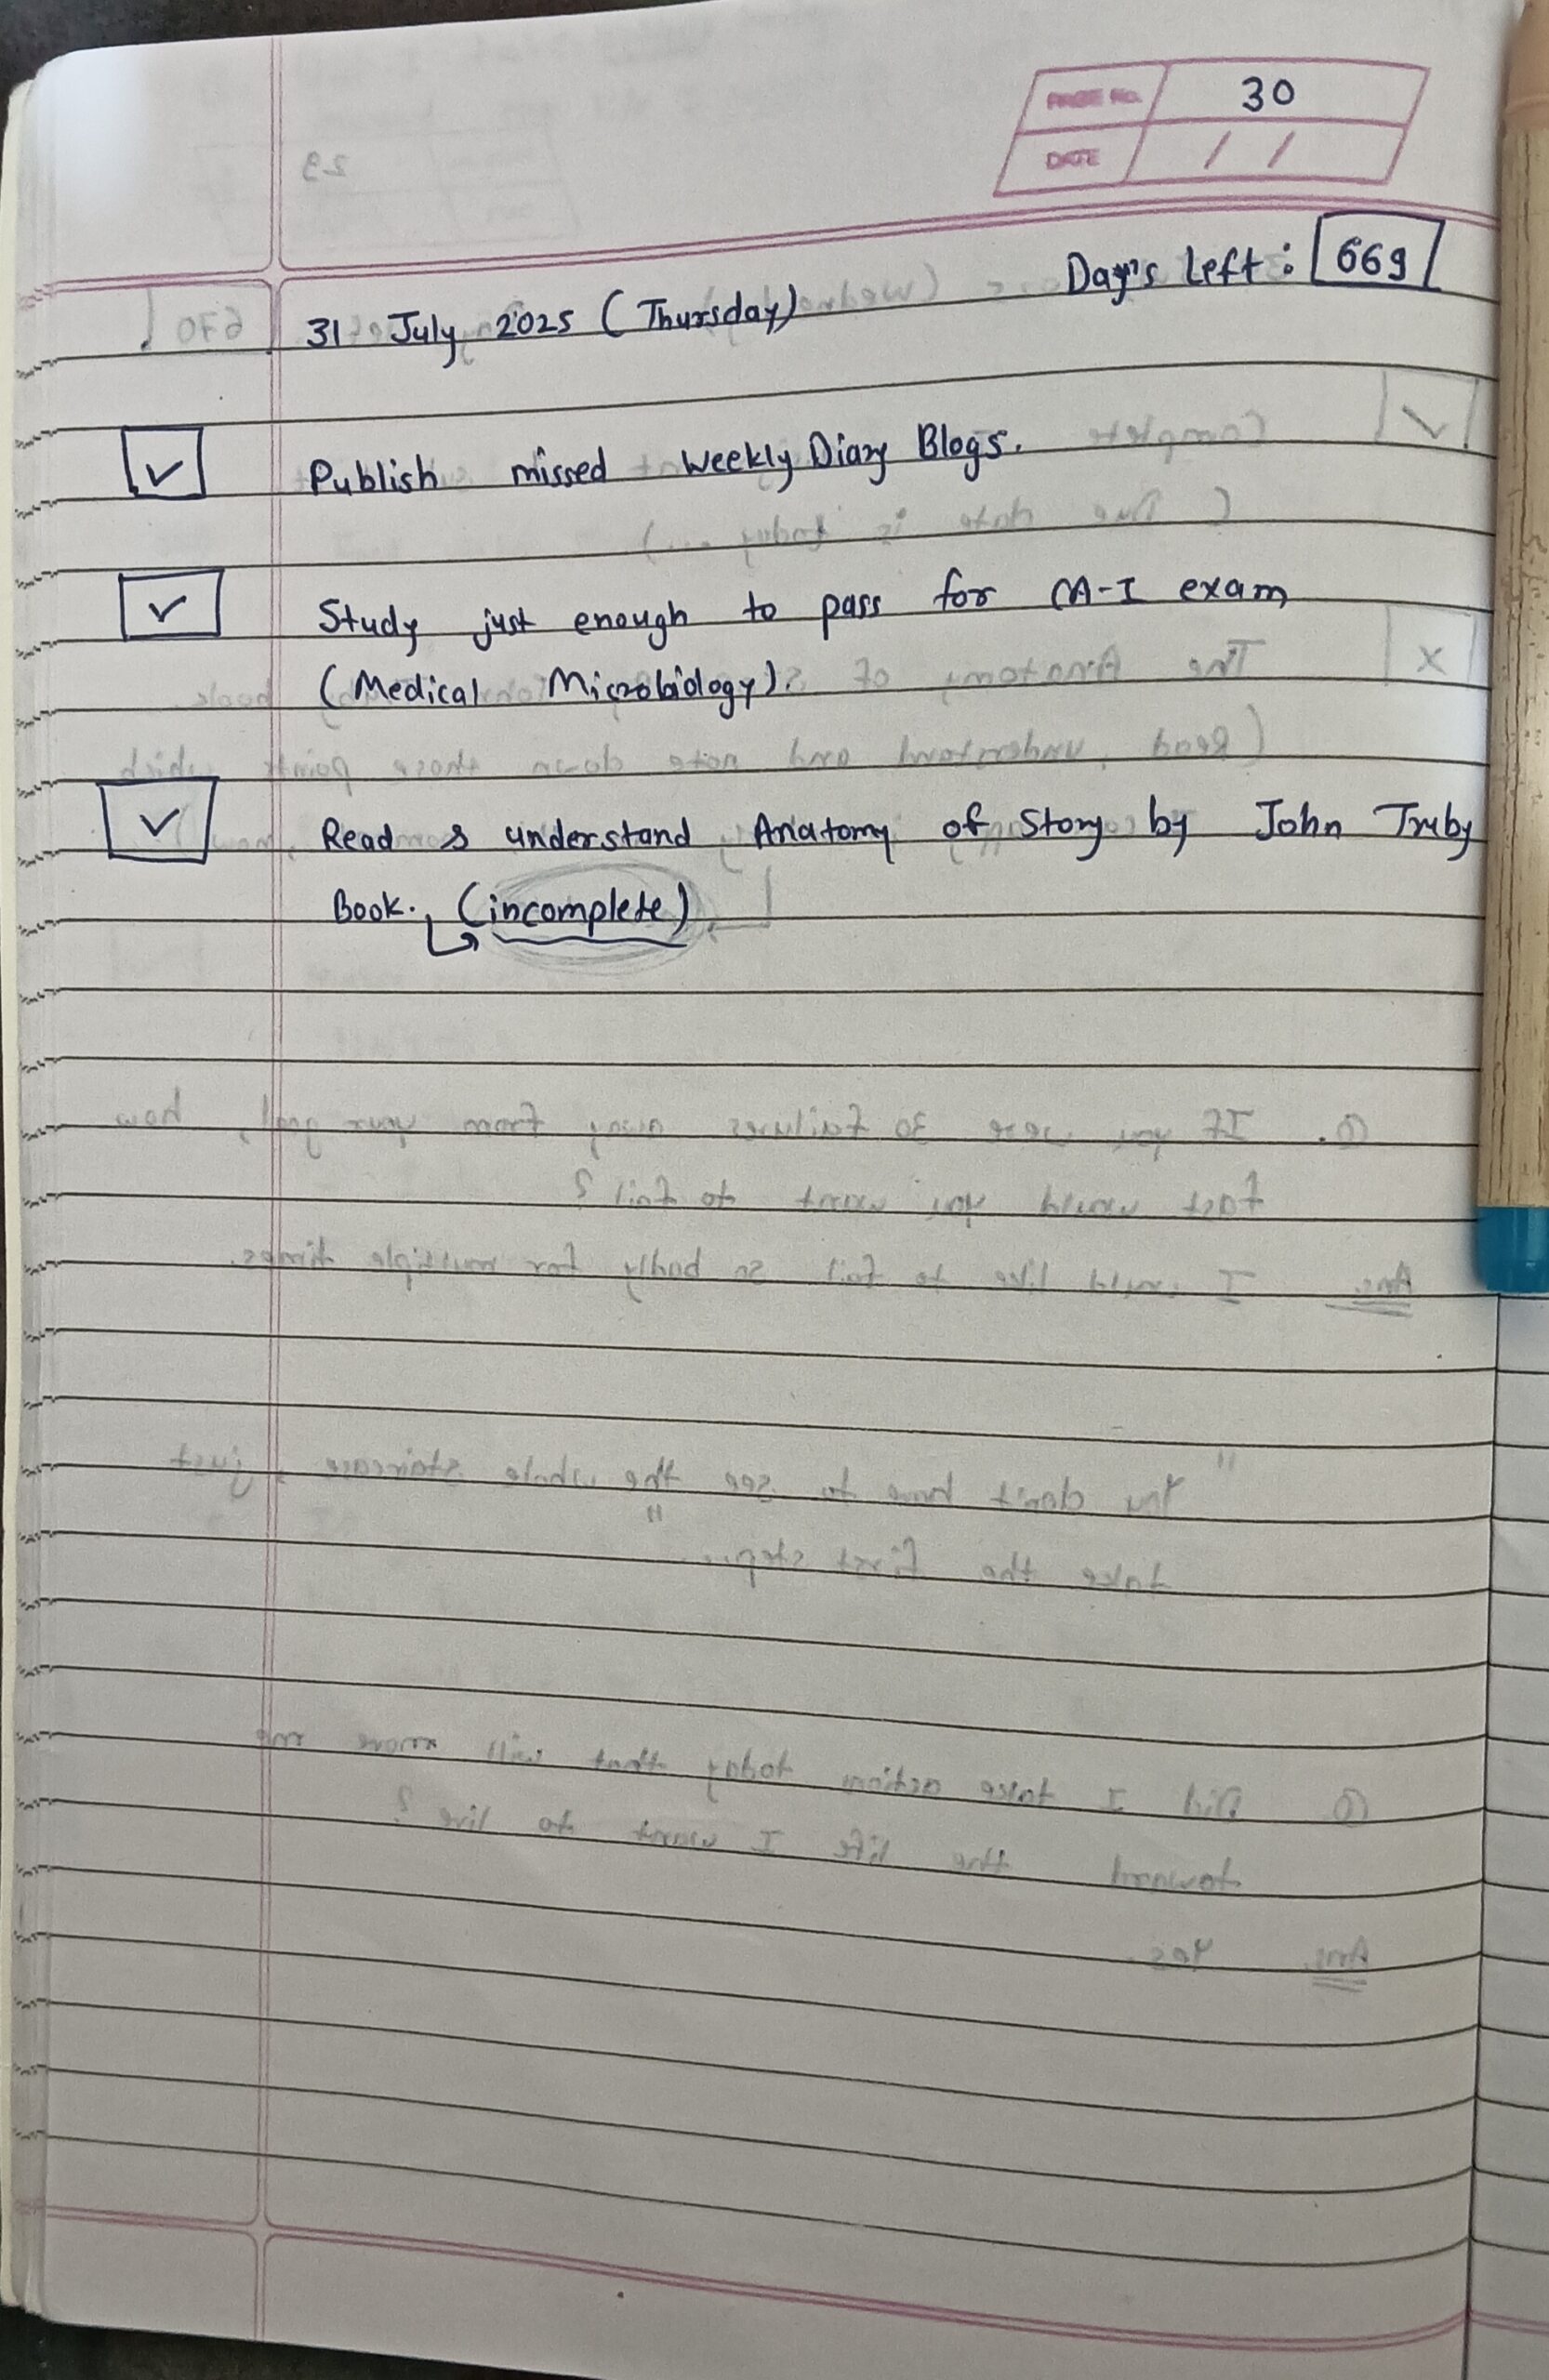 PAGE No. 30
DATE / /
Day's Left: 669
31 July 2025 (Thursday)
✓ Publish missed Weekly Diary Blogs.
✓ Study just enough to pass for CA-I exam
(Medical Microbiology).
✓ Read & understand Anatomy of Story by John Truby
Book. (incomplete)